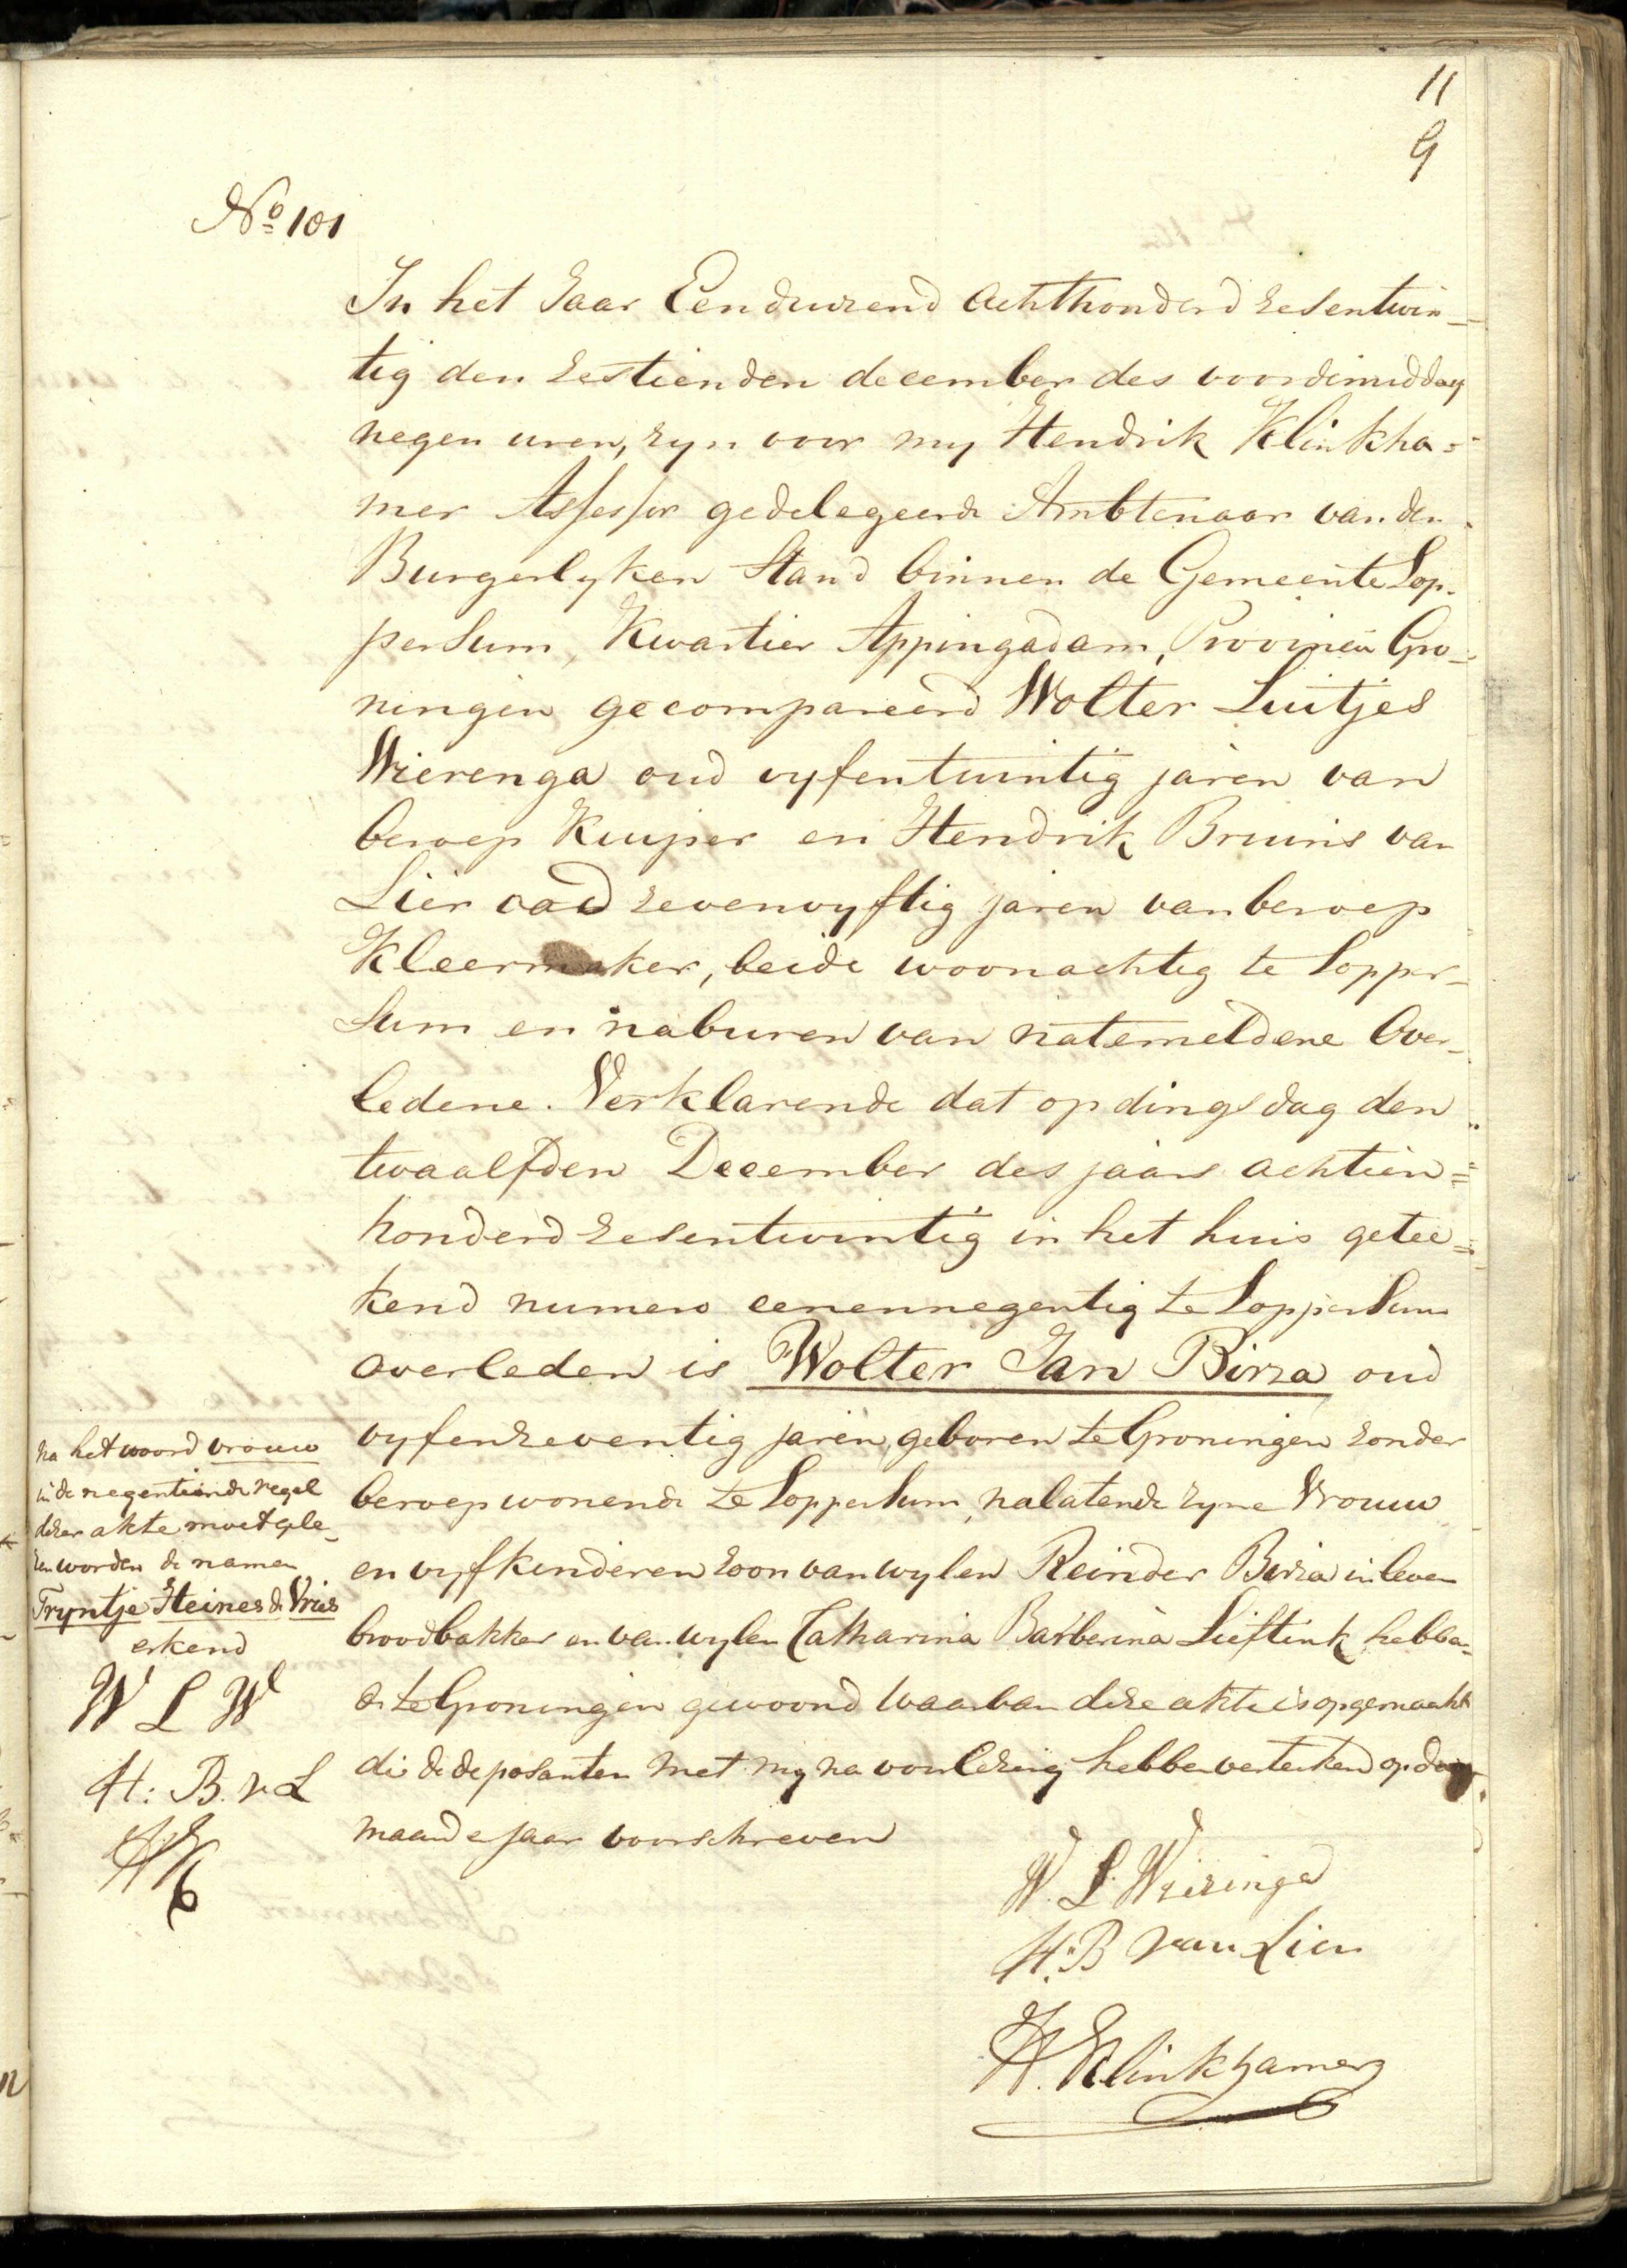 11
9
No 101
In het Jaar Eenduizend Achthonderd zesentwin-
tig den zestienden december des voordemiddag
negen uren, zyn voor my Hendrik Klinkha=
mer Assessor gedelegeerde Ambtenaar van den
Burgerlyken Stand binnen de Gemeente Lop-
persum, Kwartier Appingadam, Provincie Gro-
ningen gecompareerd Wolter Luitjes
Wierenga oud vyfentwintig jaren van
beroep Kuiper en Hendrik Bruins van
Lier oud zevenvyftig jaren van beroep
Kleermaker, beide woonachtig te Lopper-
sum en naburen van natemeldene Over-
ledene. Verklarende dat op dingsdag den
twaalfden December des jaars achtien=
honderd zesentwintig in het huis getee=
kend numero eenennegentig te Loppersum
overleden is Wolter Jan Birza oud
vyfenzeventig jaren, geboren te Groningen zonder
beroep wonende te Loppersum, nalatende zyne Vrouw
en vyf kinderen zoon van wylen Reinder Birza in leven
broodbakker en van wylen Catharina Barberina Lieftink hebben-
de te Groningen gewoond waarvan deze akte is opgemaakt
die de deposanten met my na voorlezing hebben verteekend op dag
maand e jaar voorschreven
na het woord vrouw
in de negentiende regel
dezer akte moet gele-
zen worden de namen
Tryntje Heines de Vries
erkend
W L W
H: B. v L
HK
W. L. Wieringa
H. B van Lier
H. Klinkhamer